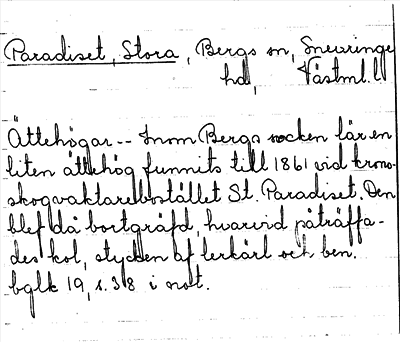 Paradiset, Stora, Bergs sn, Snevringe
hd, Västml. l
Ättehögar -- Inom Bergs socken lär en
liten ättehög funnits till 1861 vid krono-
skogvaktarebostället St. Paradiset. Den
blef då bortgräfd, hvarvid påträffa-
des kol, stycken af lerkärl och ben.
bglk 19, s. 38 i not.